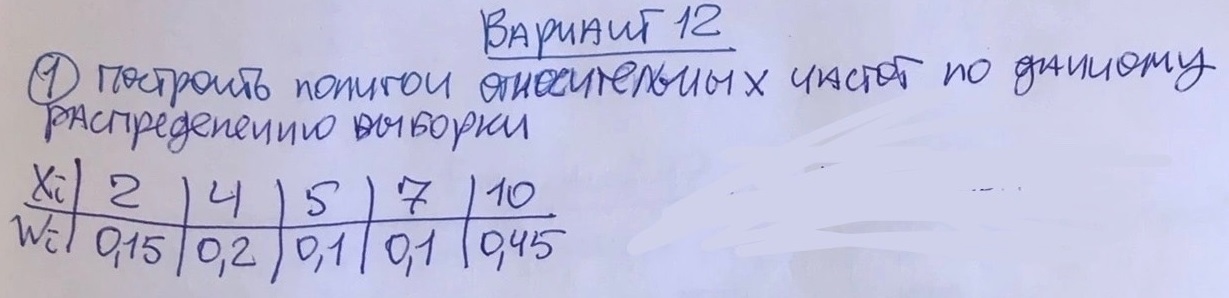 Вариант 12
① Построить полигон относительных частот по данному
распределению выборки
Xi | 2 | 4 | 5 | 7 | 10
Wi | 0,15 | 0,2 | 0,1 | 0,1 | 0,45